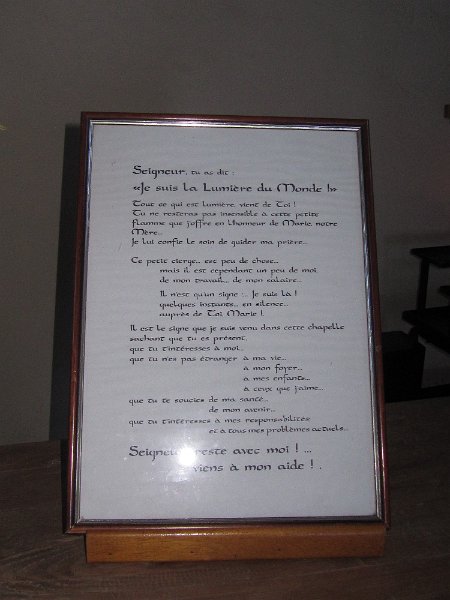 Seigneur, tu as dit :
«Je suis la Lumière du Monde !»
Tout ce qui est lumière vient de Toi !
Tu ne resteras pas insensible à cette petite
flamme que j'offre en l'honneur de Marie notre
Mère..
Je lui confie le soin de guider ma prière..
Ce petit cierge.. est peu de chose..
mais il est cependant un peu de moi
de mon travail.. de mon salaire..
Il n'est qu'un signe :.. Je suis là !
quelques instants.. en silence..
auprès de Toi Marie !
Il est le signe que je suis venu dans cette chapelle
sachant que tu es présent
que tu t'intéresses à moi..
que tu n'es pas étranger à ma vie..
à mon foyer..
à mes enfants..
à ceux que j'aime..
que tu te soucies de ma santé..
de mon avenir..
que tu t'intéresses à mes responsabilités
et à tous mes problèmes actuels..
Seigneur reste avec moi ! ...
viens à mon aide ! .